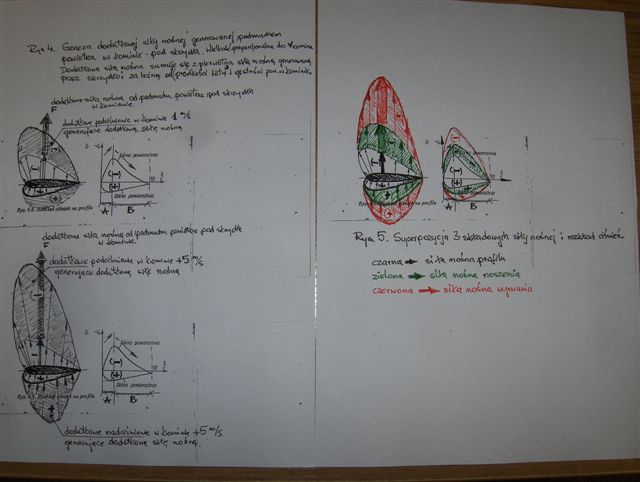 Rys 4. Geneza dodatkowej siły nośnej generowanej podmuchem
powietrza w kominie - pod skrzydła. Wielkość proporcjonalna do V komina
Dodatkowa siła nośna sumuje się z pierwotną siłą nośną generowaną
przez skrzydło i zależną od prędkości lotu i
dodatkowa siła nośna od podmuchu powietrza pod skrzydła
w kominie
F
dodatkowe podciśnienie w kominie 1 m/s
generujące dodatkową siłę nośną
Górna powierzchnia
(-)
(+)
Dolna powierzchnia
Rozkład ciśnień na profilu
A B
dodatkowa siła nośna od podmuchu powietrza pod skrzydła
w kominie
F
dodatkowe podciśnienie w kominie +5 m/s
generujące dodatkową siłę nośną
Górna powierzchnia
(-)
(+)
Dolna powierzchnia
na profilu
A B
dodatkowe nadciśnienie w kominie +5 m/s
generujące dodatkową siłę nośną.
Górna powierzchnia
(-)
(+)
Dolna powierzchnia
Rozkład ciśnień na profilu
A B
Rys 5. Superpozycja 3 składowych siły nośnej i rozkład ciśnień.
czarna → siła nośna profilu
zielona → siła nośna noszenia
czerwona → siła nośna wyrwania